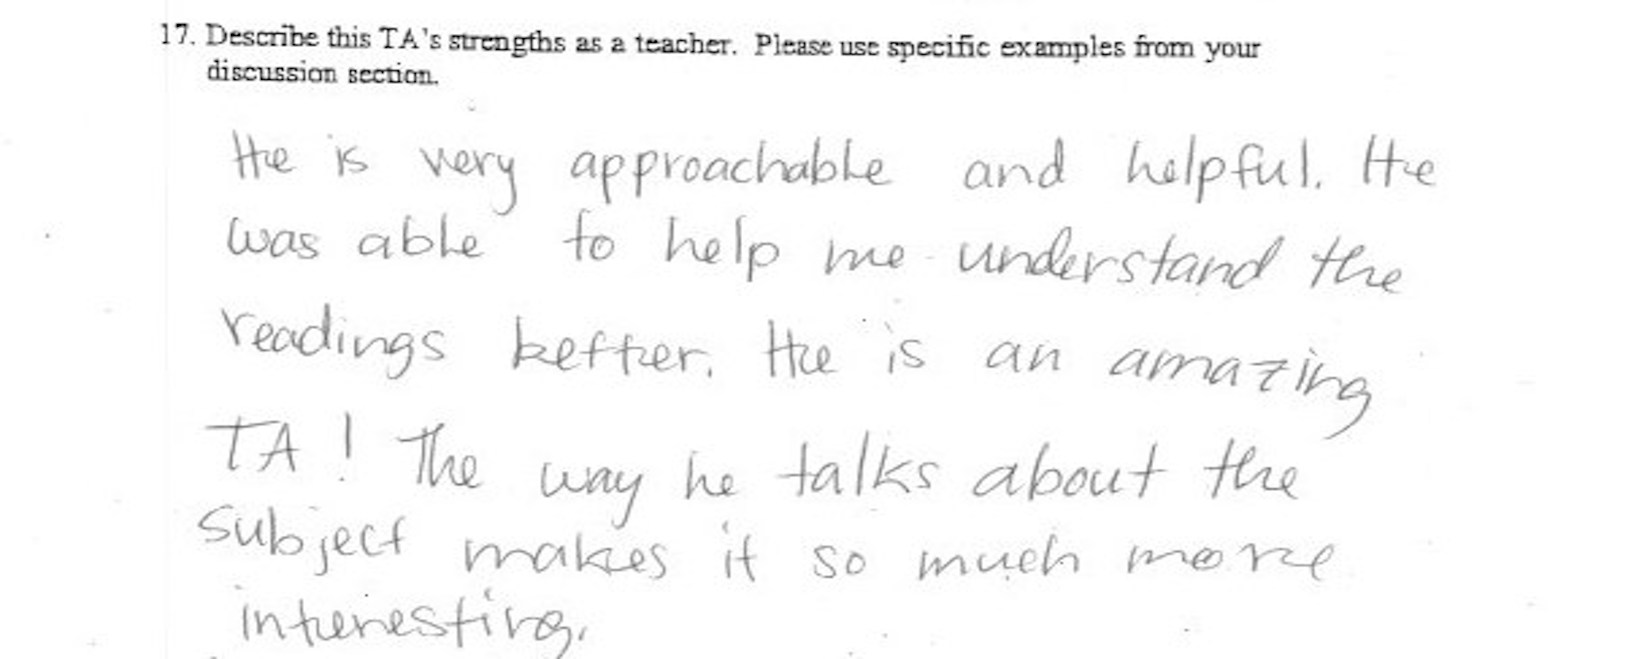 17. Describe this TA's strengths as a teacher. Please use specific examples from your
discussion section.
He is very approachable and helpful. He
was able to help me understand the
readings better. He is an amazing
TA! The way he talks about the
subject makes it so much more
interesting.